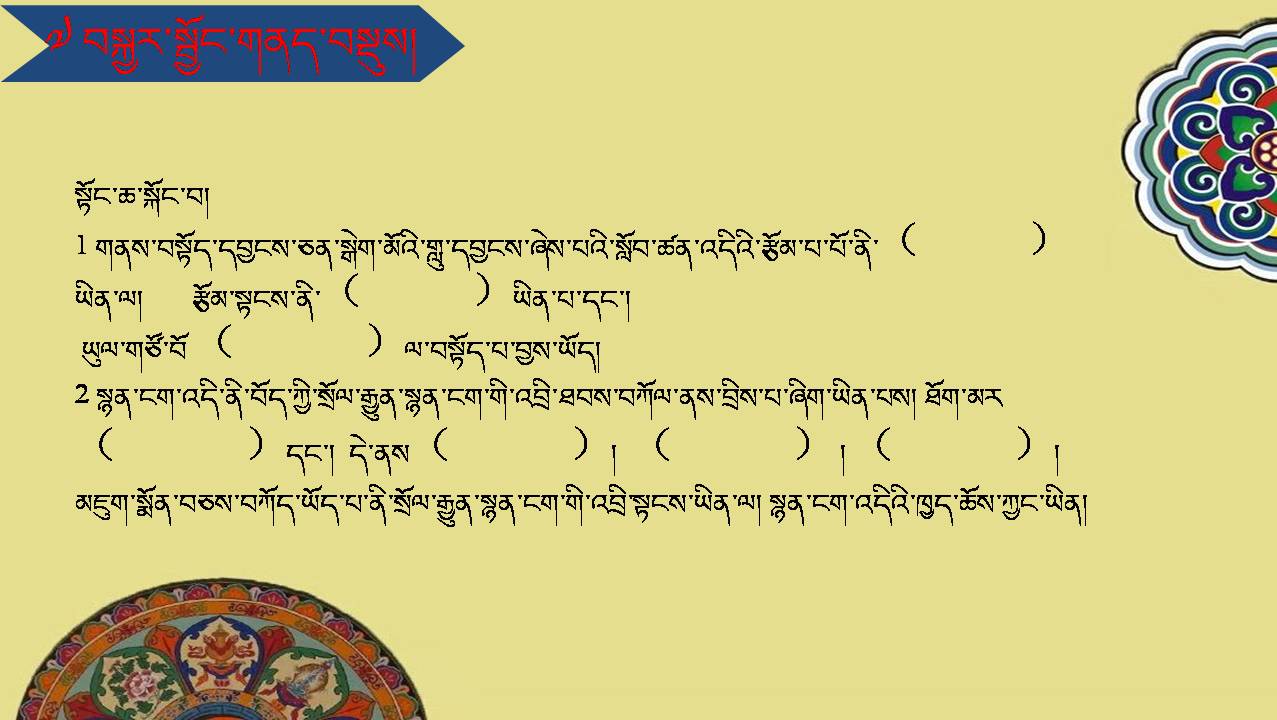 ༧ བསྐྱར་སྦྱོང་གནད་བསྡུས།
སྟོང་ཆ་སྐོང་བ།
1 གནས་བསྟོད་དབྱངས་ཅན་སྒེག་མོའི་གླུ་དབྱངས་ཞེས་པའི་སློབ་ཚན་འདིའི་རྩོམ་པ་པོ་ནི་ ( )
ཡིན་ལ། རྩོམ་སྟངས་ནི་ ( ) ཡིན་པ་དང་།
ཡུལ་གཙོ་བོ ( ) ལ་བསྟོད་པ་བྱས་ཡོད།
2 སྙན་ངག་འདི་ནི་བོད་ཀྱི་སྲོལ་རྒྱུན་སྙན་ངག་གི་འབྲི་ཐབས་བཀོལ་ནས་བྲིས་པ་ཞིག་ཡིན་པས། ཐོག་མར
( ) དང་། དེ་ནས ( ) ། ( ) ། ( ) །
མཇུག་སྨོན་བཅས་བཀོད་ཡོད་པ་ནི་སྲོལ་རྒྱུན་སྙན་ངག་གི་འབྲི་སྟངས་ཡིན་ལ། སྙན་ངག་འདིའི་ཁྱད་ཆོས་ཀྱང་ཡིན།